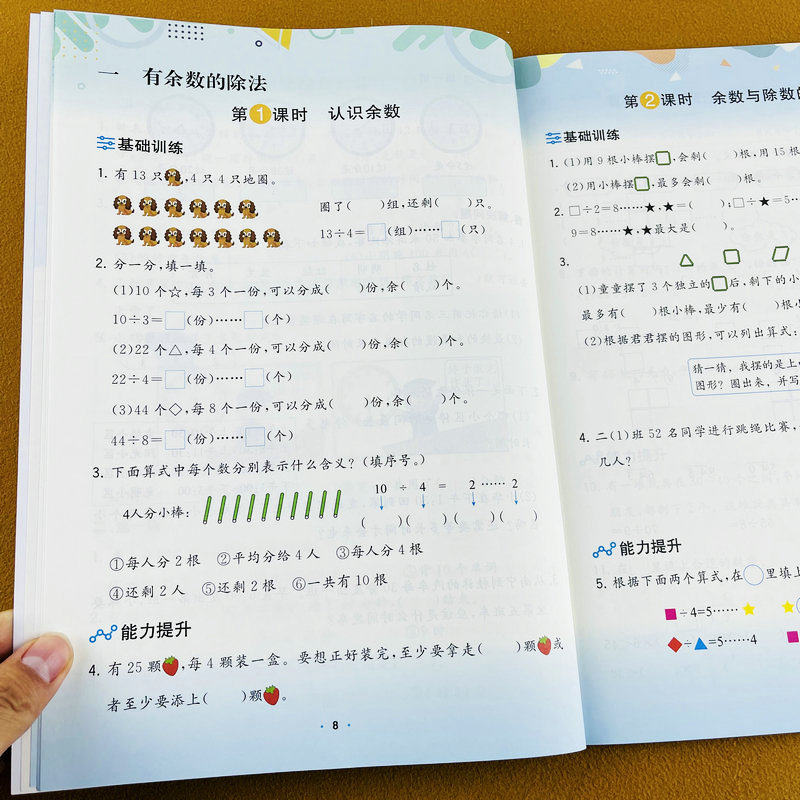 一 有余数的除法
第1课时 认识余数
基础训练
1. 有 13 只,4 只 4 只地圈。
圈了( )组,还剩( )只。
13÷4=□(组)……□(只)
2. 分一分,填一填。
(1)10 个☆,每 3 个一份,可以分成( )份,余( )个。
10÷3=□(份)……□(个)
(2)22 个△,每 4 个一份,可以分成( )份,余( )个。
22÷4=□(份)……□(个)
(3)44 个◇,每 8 个一份,可以分成( )份,余( )个。
44÷8=□(份)……□(个)
3. 下面算式中每个数分别表示什么含义?(填序号。)
10 ÷ 4 = 2 …… 2
4人分小棒:
( )( )( )( )
①每人分 2 根 ②平均分给 4 人 ③每人分 4 根
④还剩 2 人 ⑤还剩 2 根 ⑥一共有 10 根
能力提升
4. 有 25 颗,每 4 颗装一盒。要想正好装完,至少要拿走( )颗或
者至少要添上( )颗。
· 8 ·
第2课时 余数与除数的
基础训练
1. (1)用 9 根小棒摆□,会剩( )根,用 15 根
(2)用小棒摆□,最多会剩( )根。
2. □÷2=8……★,★=( );□÷★=5…
9=8……★,★最大是( )。
3.
(1)童童摆了 3 个独立的□后,剩下的小
最多有( )根小棒,最少有( )根小
(2)根据君君摆的图形,可以列出算式:
猜一猜,我摆的是上
图形?圈出来,并写
4. 二(1)班 52 名同学进行跳绳比赛,
几人?
能力提升
5. 根据下面两个算式,在○里填上
■÷4=5……★
◆÷▲=5……4